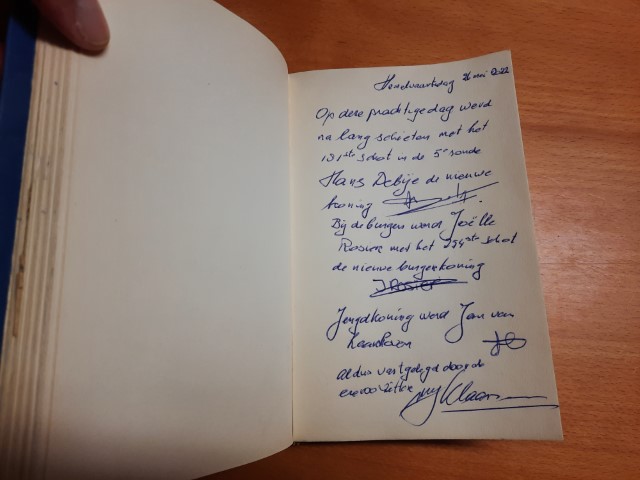 Hemelvaartsdag 26 mei 2022
Op deze prachtige dag werd
na lang schieten met het
131ste schot in de 5e ronde
Hans Debije de nieuwe
koning
Bij de burgers werd Joëlle
Rosier met het schot
de nieuwe burgerkoning
JRosier
Jeugdkoning werd Jan van
aldus vastgelegd door de
erevoorzitter